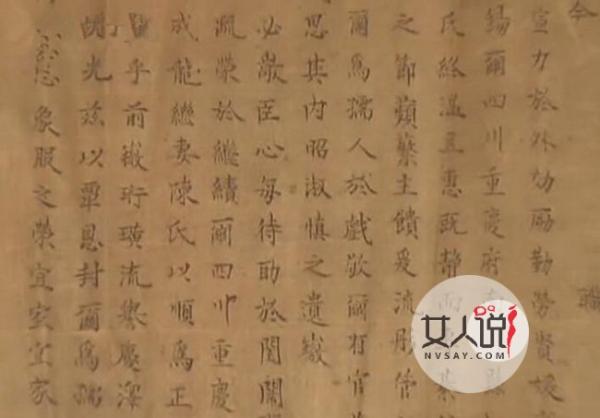 宣力於外劬勵勤勞賢媛
錫爾四川重慶府
氏終溫且惠既靜而
之節蘋蘩主饋爰流彤管
爾爲孺人於戲敬爾有官
思其內昭淑慎之遺徽
必敬臣心每待助於閨闈
疏榮於繼續爾四川重慶
成龍繼妻陳氏以順爲正
乎前徽珩璜流譽慶澤
光茲以覃恩封爾爲孺
象服之榮宜室宜家
女人说
NVSAY.COM